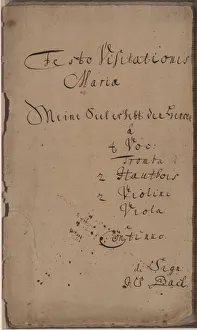 Festo Visitationis
Mariæ
Meine Seel erhebt den Herren
â
4 Voc:
Tromba
2 Hautbois
2 Violini
Viola
Continuo
di Sign:
JS Bach